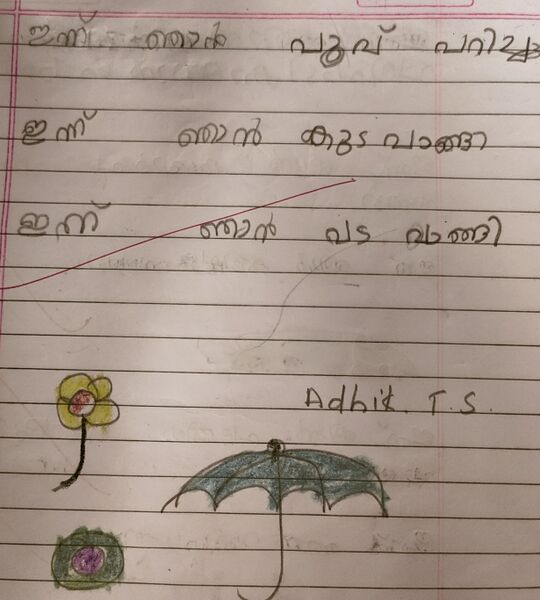 ഇന്ന് ഞാൻ പൂവ് പറിച്ചു
ഇന്ന് ഞാൻ കുട വാങ്ങി
ഇന്ന് ഞാൻ പട വാങ്ങി
Adhik. T. S.